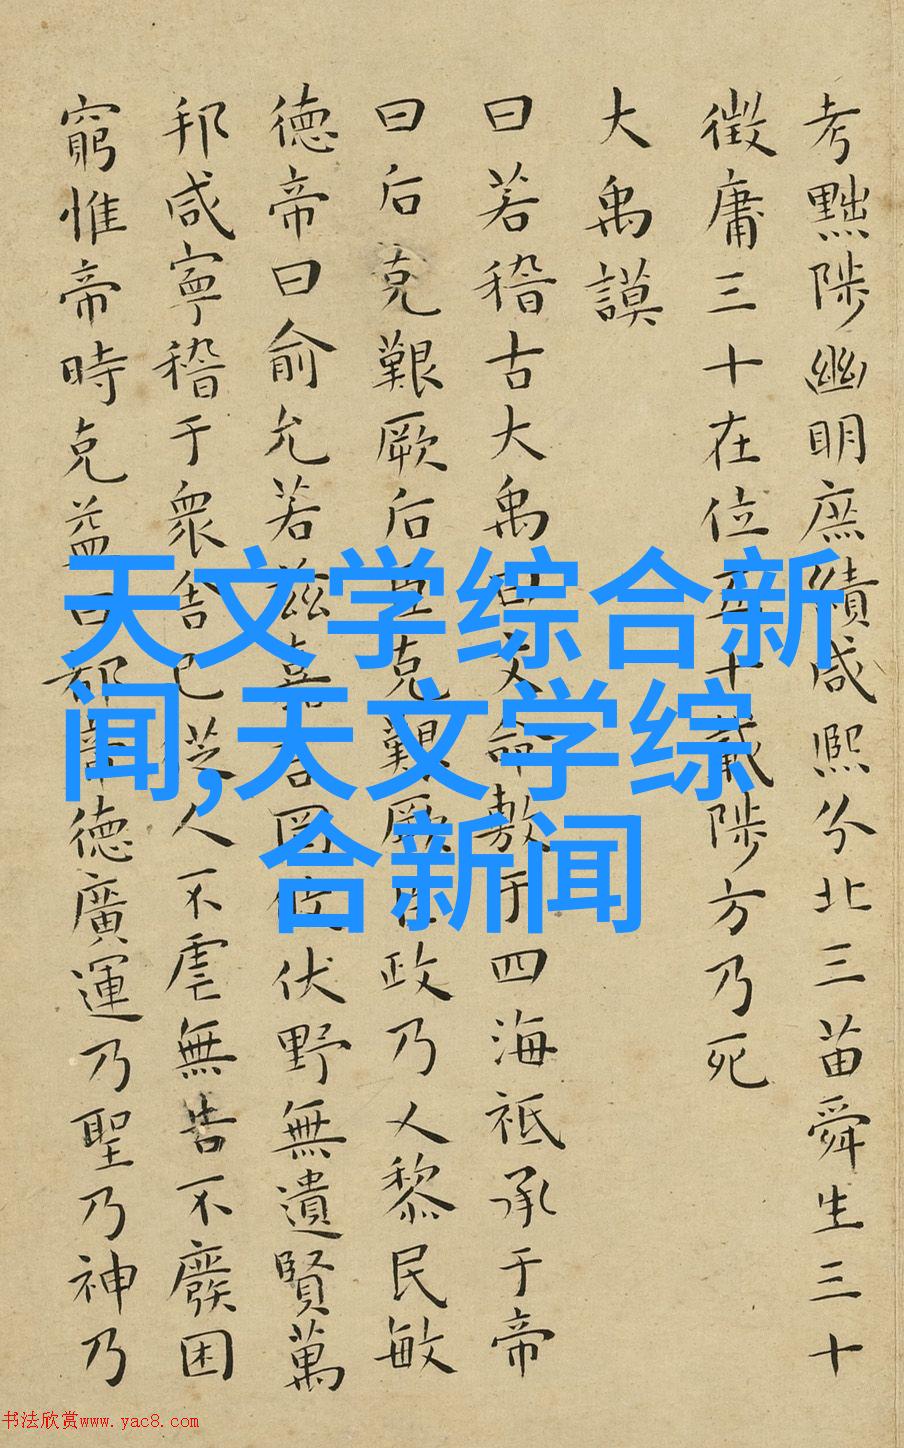 考黜陟幽明庶績咸熙分北三苗舜生三十
徵庸三十在位五十載陟方乃死
大禹謨
曰若稽古大禹曰文命敷于四海祗承于帝
曰后克艱厥后臣克艱厥臣政乃乂黎民敏
德帝曰俞允若茲嘉言罔攸伏野無遺賢萬
邦咸寧稽于衆舍己從人不虐無告不廢困
窮惟帝時克益曰都帝德廣運乃聖乃神乃
天文学综合新
闻,天文学综
合新闻
书法欣赏www.yac8.com